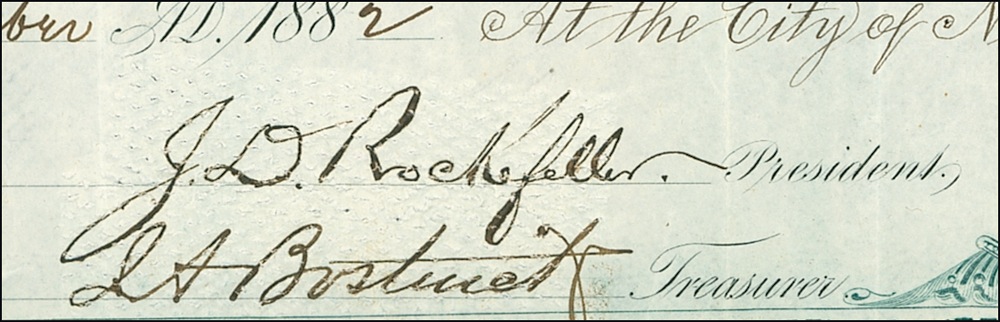 ber A.D. 1882 At the City of N
J. D. Rockefeller. President.
J A Bostwick Treasurer.